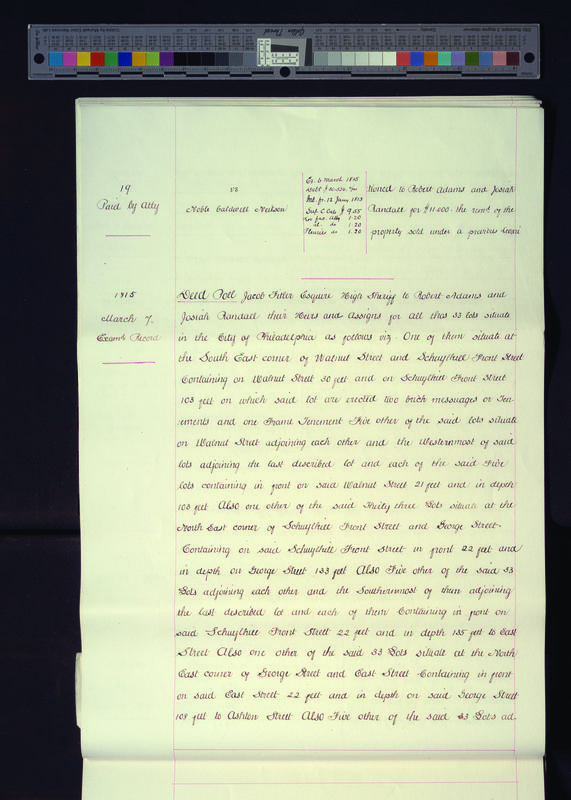 19
Paid by Atty
vs
Noble Caldwell Neilson
Ex. 6 March 1815
Debt $
Int. fr. 12 Jany 1813
Sup C Cts $ 9.55
fac. Atty 1.20
al. do 1.20
Pluries do 1.20
tioned to Robert Adams and Josiah
Randall for $11,000. the remr. of the
property sold under a previous
1815
March 7.
Examd. Record
Deed Poll Jacob Fitler Esquire High Sheriff to Robert Adams and
Josiah Randall their Heirs and Assigns for all that 33 lots situate
in the City of Philadelphia as follows viz. One of them situate at
the South East corner of Walnut Street and Schuylkill Front Street
Containing on Walnut Street 30 feet and on Schuylkill Front Street
103 feet on which said lot are erected two brick messuages or Ten-
ements and one Frame Tenement Five other of the said lots situate
on Walnut Street adjoining each other and the Westernmost of said
lots adjoining the last described lot and each of the said Five
lots containing in front on said Walnut Street 21 feet and in depth
103 feet Also one other of the said Thirty three Lots situate at the
North East corner of Schuylkill Front Street and George Street.
Containing on said Schuylkill Front Street in front 22 feet and
in depth on George Street 133 feet Also Five other of the said 33
Lots adjoining each other and the Southernmost of them adjoining
the last described lot and each of them Containing in front on
said Schuylkill Front Street 22 feet and in depth 135 feet to East
Street Also one other of the said 33 Lots situate at the North
East corner of George Street and East Street Containing in front
on said East Street 22 feet and in depth on said George Street
109 feet to Ashton Street Also Five other of the said 33 Lots ad.